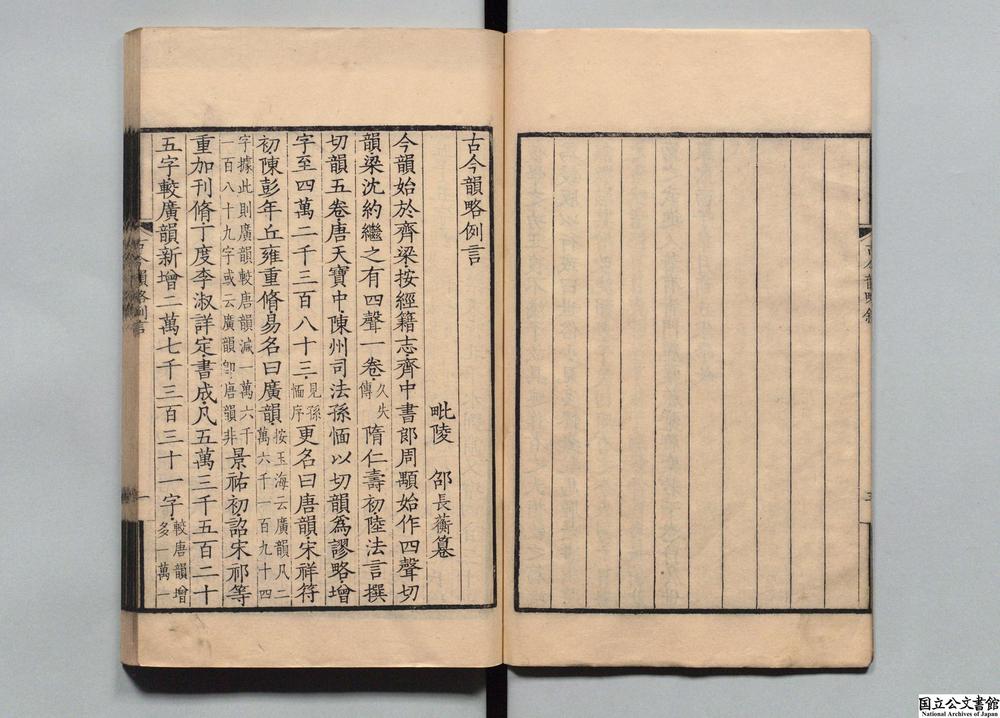 古今韻略叙
三
古今韻略例言
毗陵 邵長蘅纂
今韻始於齊梁按經籍志齊中書郎周顒始作四聲切
韻梁沈約繼之有四聲一卷久失傳隋仁壽初陸法言撰
切韻五卷唐天寶中陳州司法孫愐以切韻爲謬略增
字至四萬二千三百八十三見孫愐序更名曰唐韻宋祥符
初陳彭年丘雍重脩易名曰廣韻按玉海云廣韻凡二萬六千一百九十四
字據此則廣韻較唐韻減一萬六千一百八十九字或云廣韻卽唐韻非景祐初詔宋祁等
重加刊脩丁度李淑詳定書成凡五萬三千五百二十
五字較廣韻新增二萬七千三百三十一字較唐韻增多一萬一
古今韻略例言
一
国立公文書館
National Archives of Japan